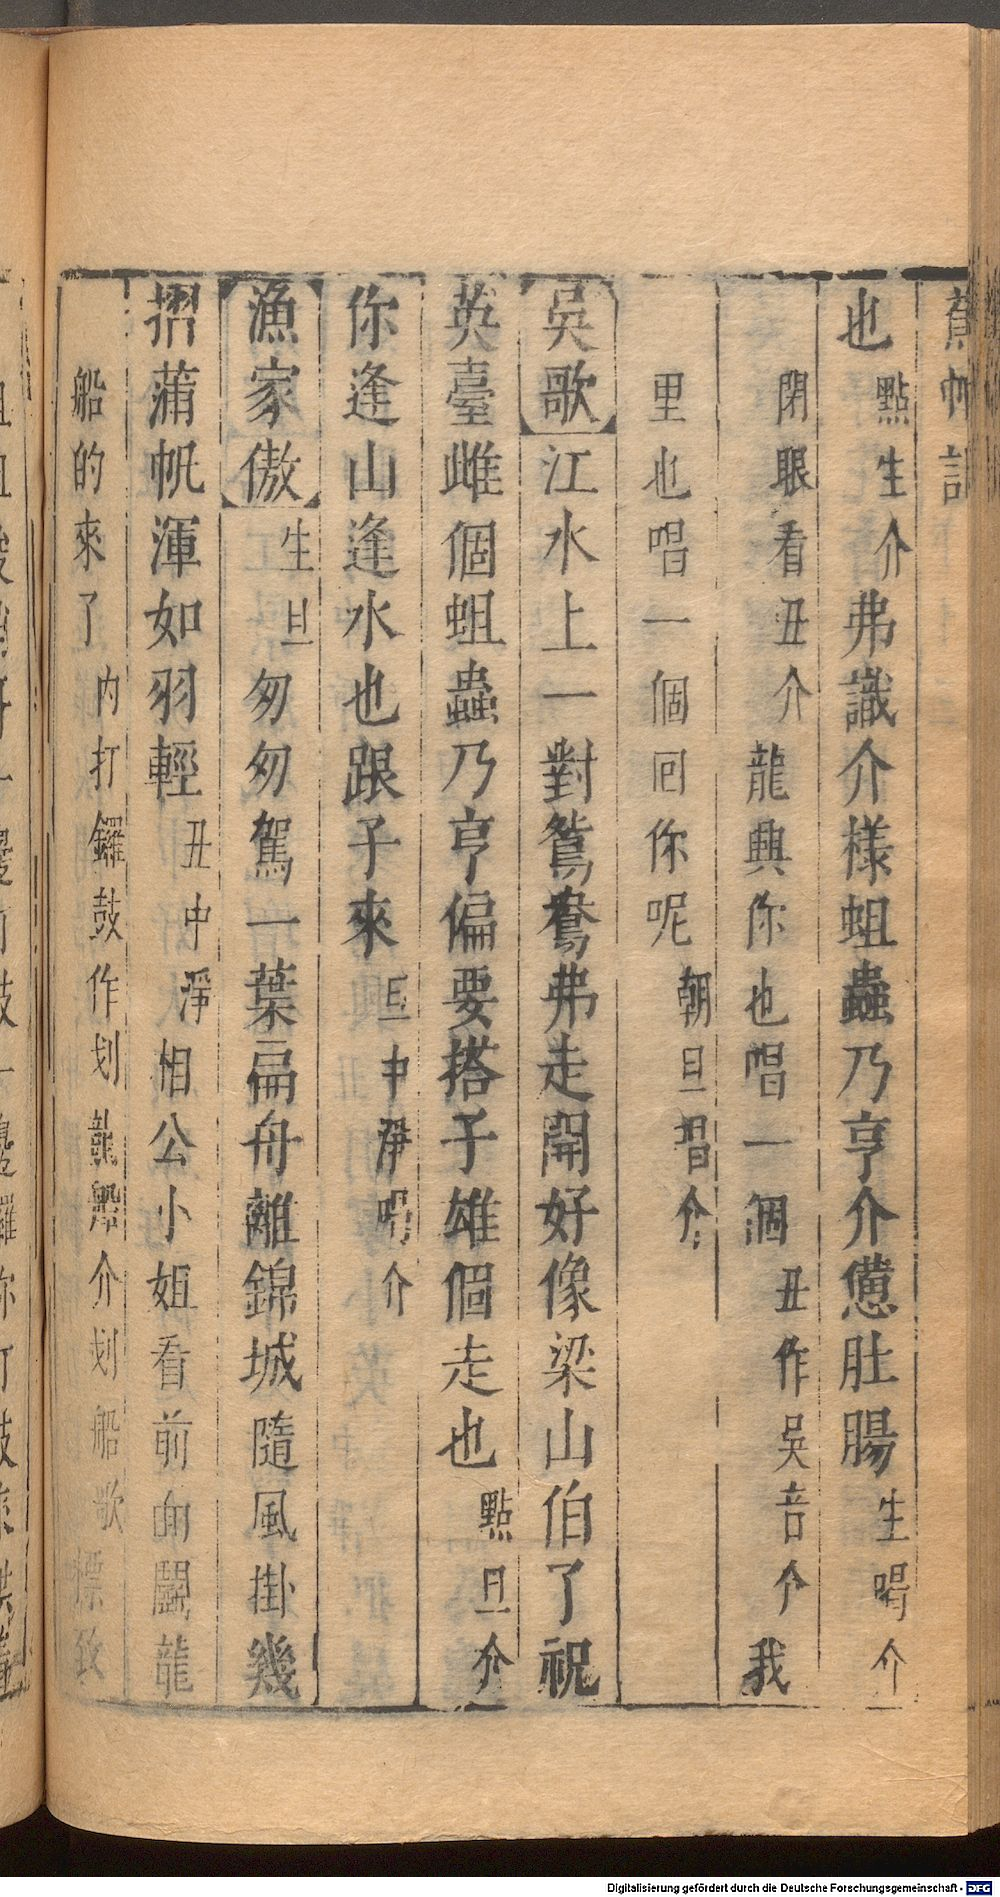 蕉帕記
也點生介弗識介樣蛆蟲乃亨介憊肚腸生喝介
閉眼看丑介龍興你也唱一個丑作吳音介我
里也唱一個回你呢朝旦唱介
吳歌江水上一對鴛鴦弗走開好像梁山伯了祝
英臺雌個蛆蟲乃亨偏要搭子雄個走也點旦介
你逢山逢水也跟子來旦中淨唱介
漁家傲生旦匆匆駕一葉扁舟離錦城隨風掛幾
摺蒲帆渾如羽輕丑中淨相公小姐看前面鬪龍
船的來了内打鑼鼓作划龍船介划船歌
Digitalisierung gefördert durch die Deutsche Forschungsgemeinschaft - DFG